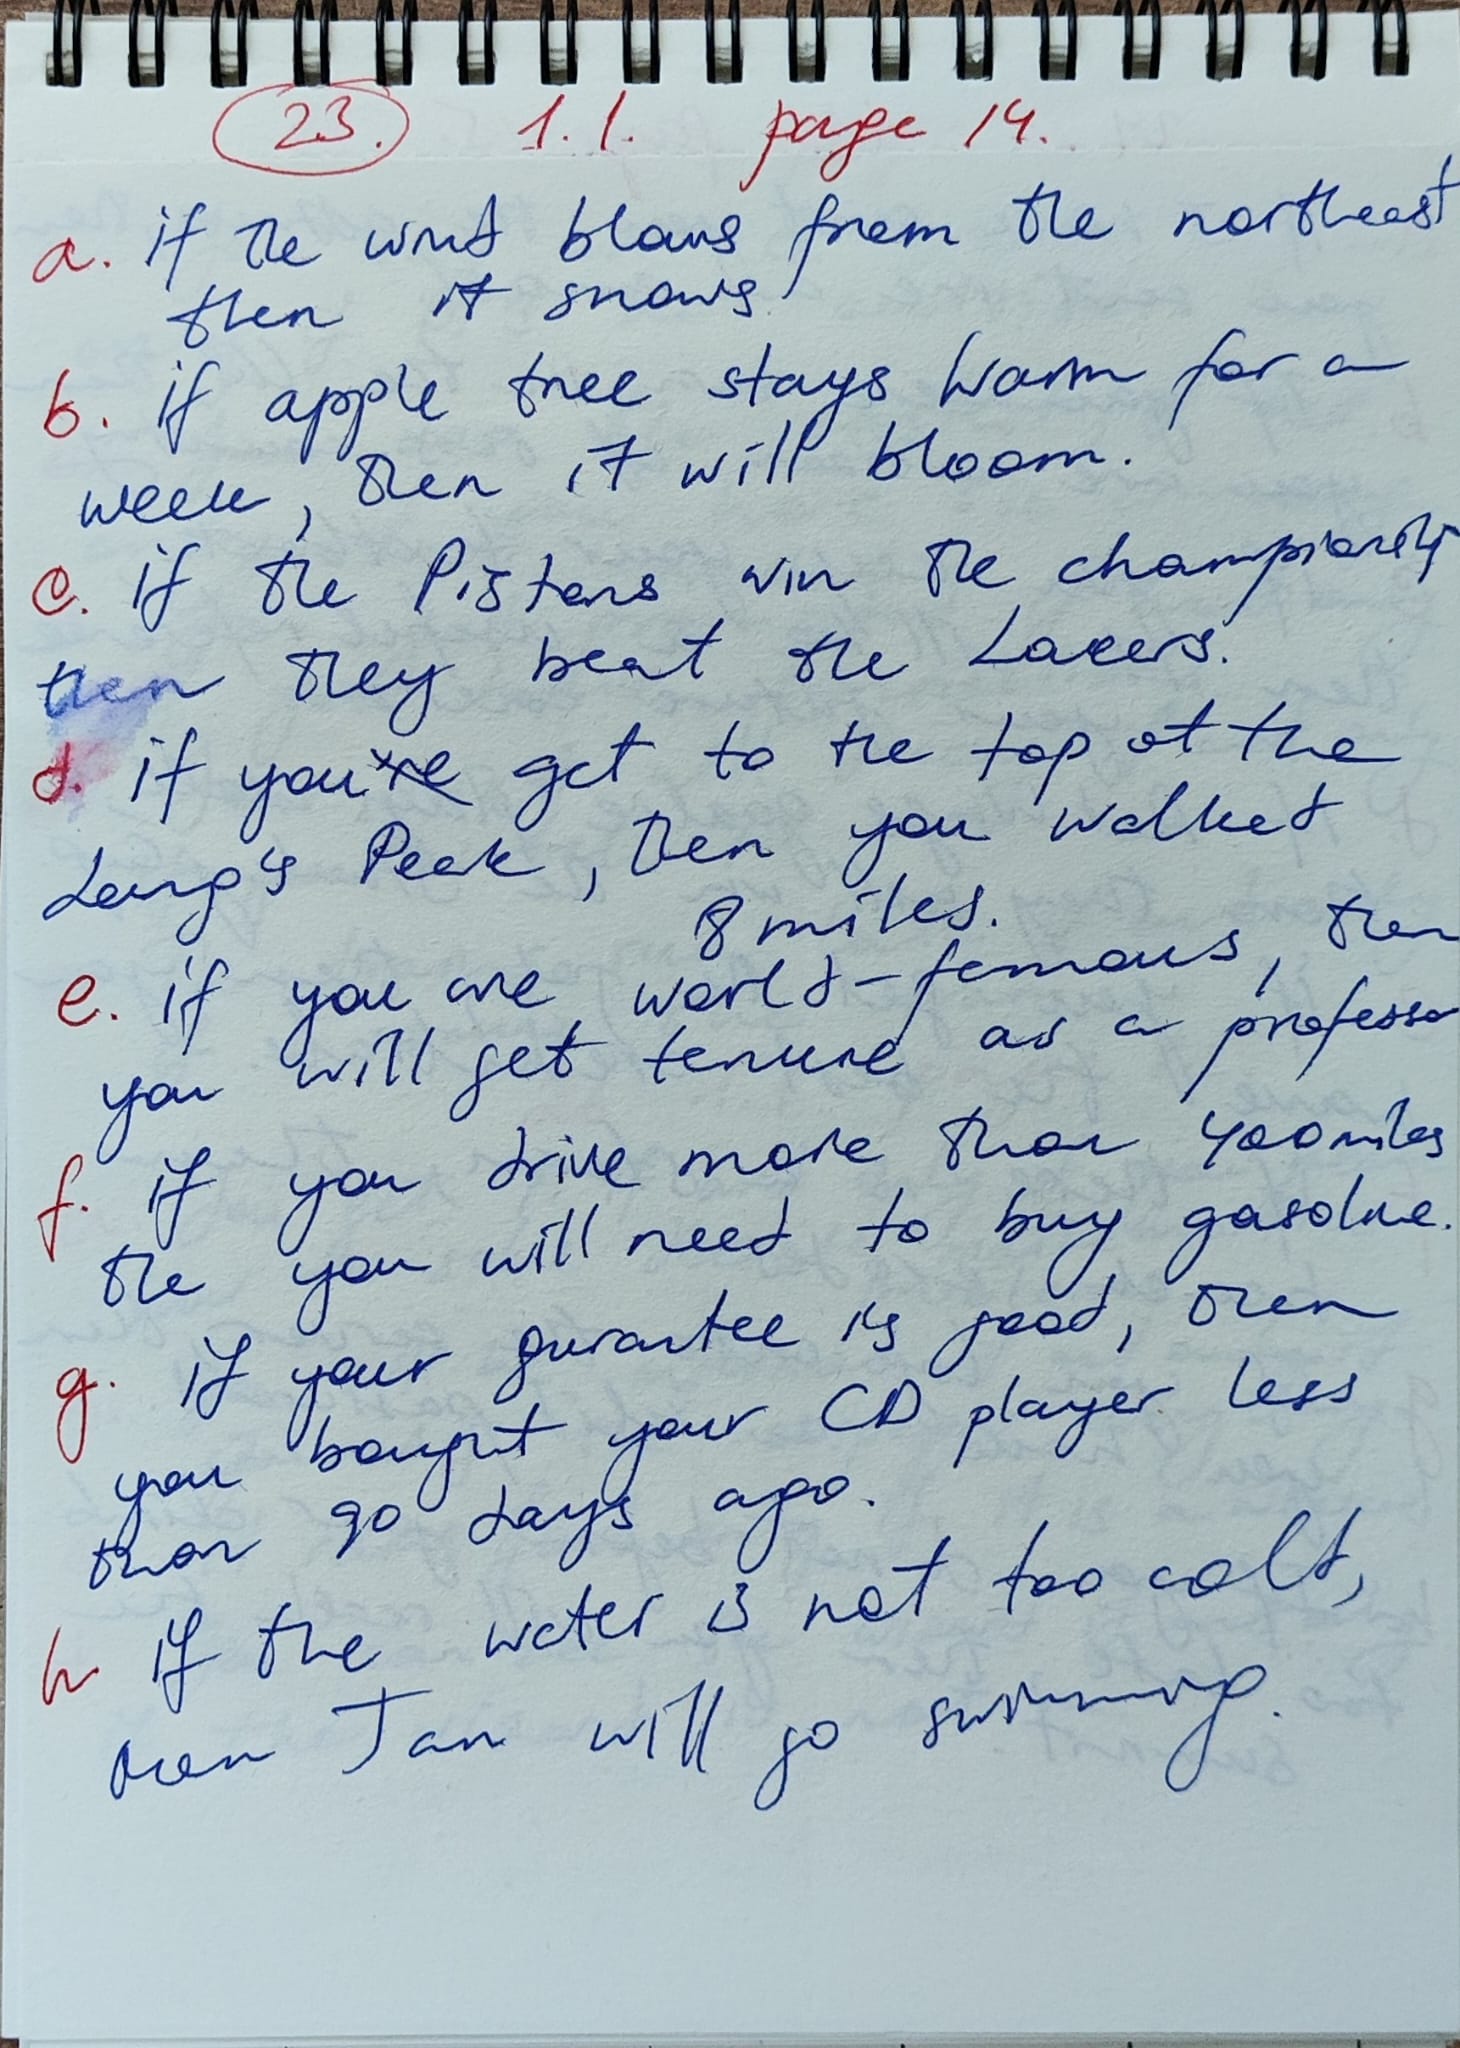 23. 1.1. page 14.
a. if the wind blows from the northeast
then it snows.
b. if apple tree stays warm for a
week, then it will bloom.
c. if the Pistons win the championship
then they beat the Lakers.
d. if you get to the top of the
Long's Peak, then you walked
8 miles.
e. if you are world-famous, then
you will get tenure as a professor
f. if you drive more than 400 miles
the you will need to buy gasoline.
g. if your gurantee is good, then
you bought your CD player less
than 90 days ago.
h if the water is not too cold,
then Jan will go swimming.